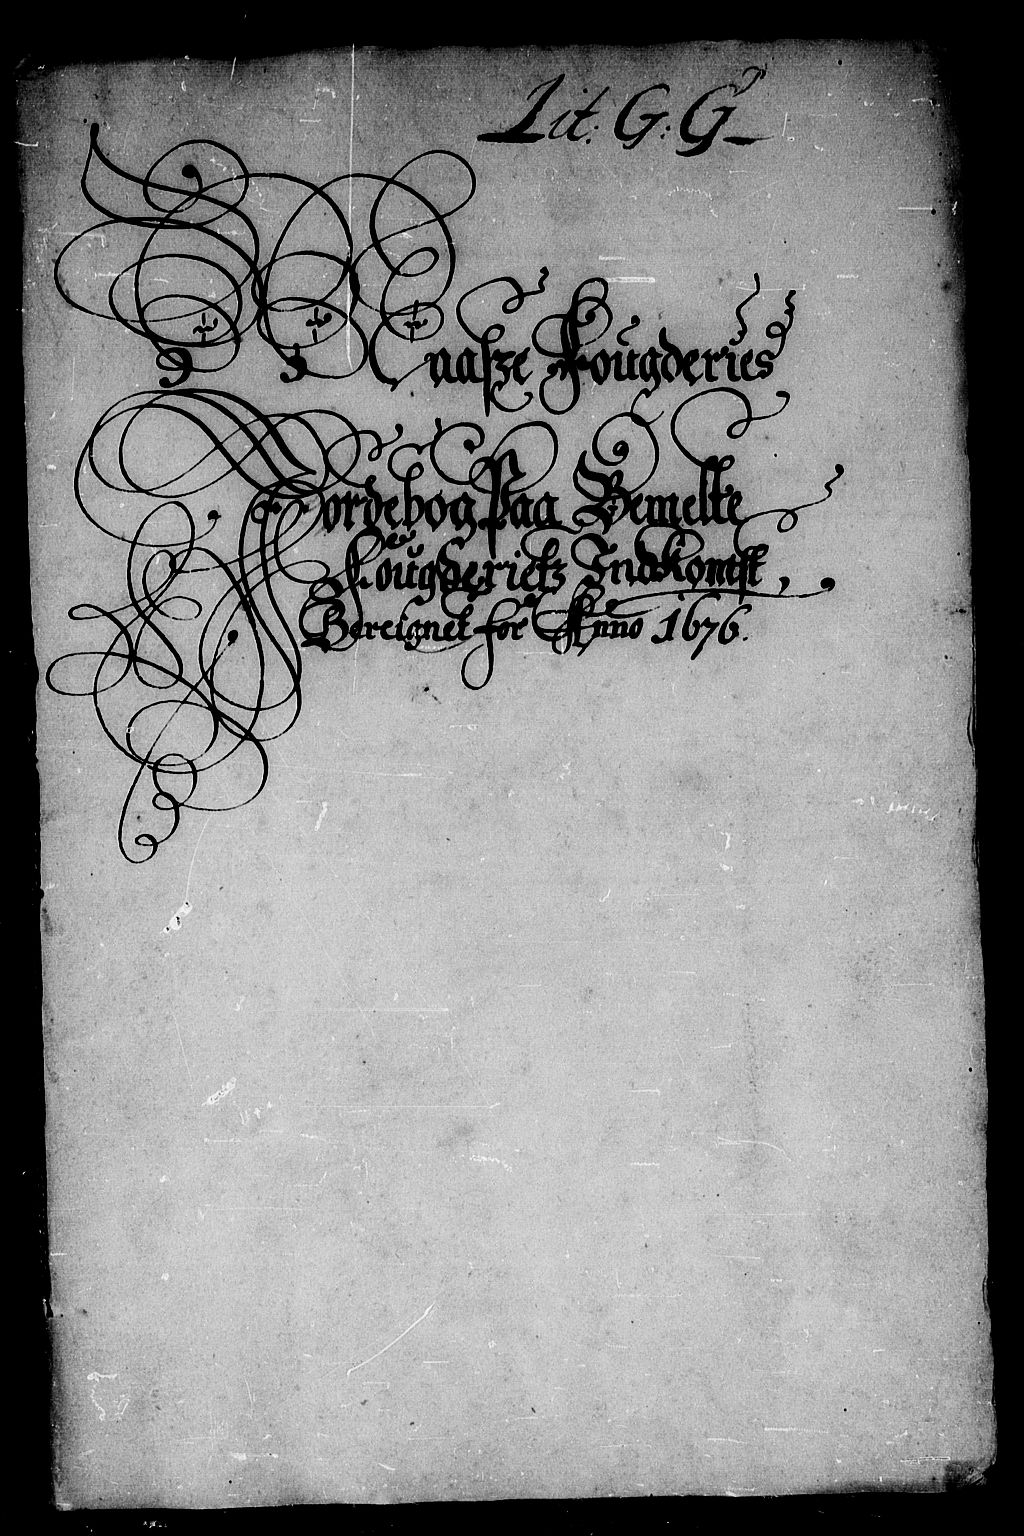 Lit: G: G
Maasze Fougderies
Jordebog Paa Bemelte
Fougderietz Indkomst,
Beregnet for Anno 1676.